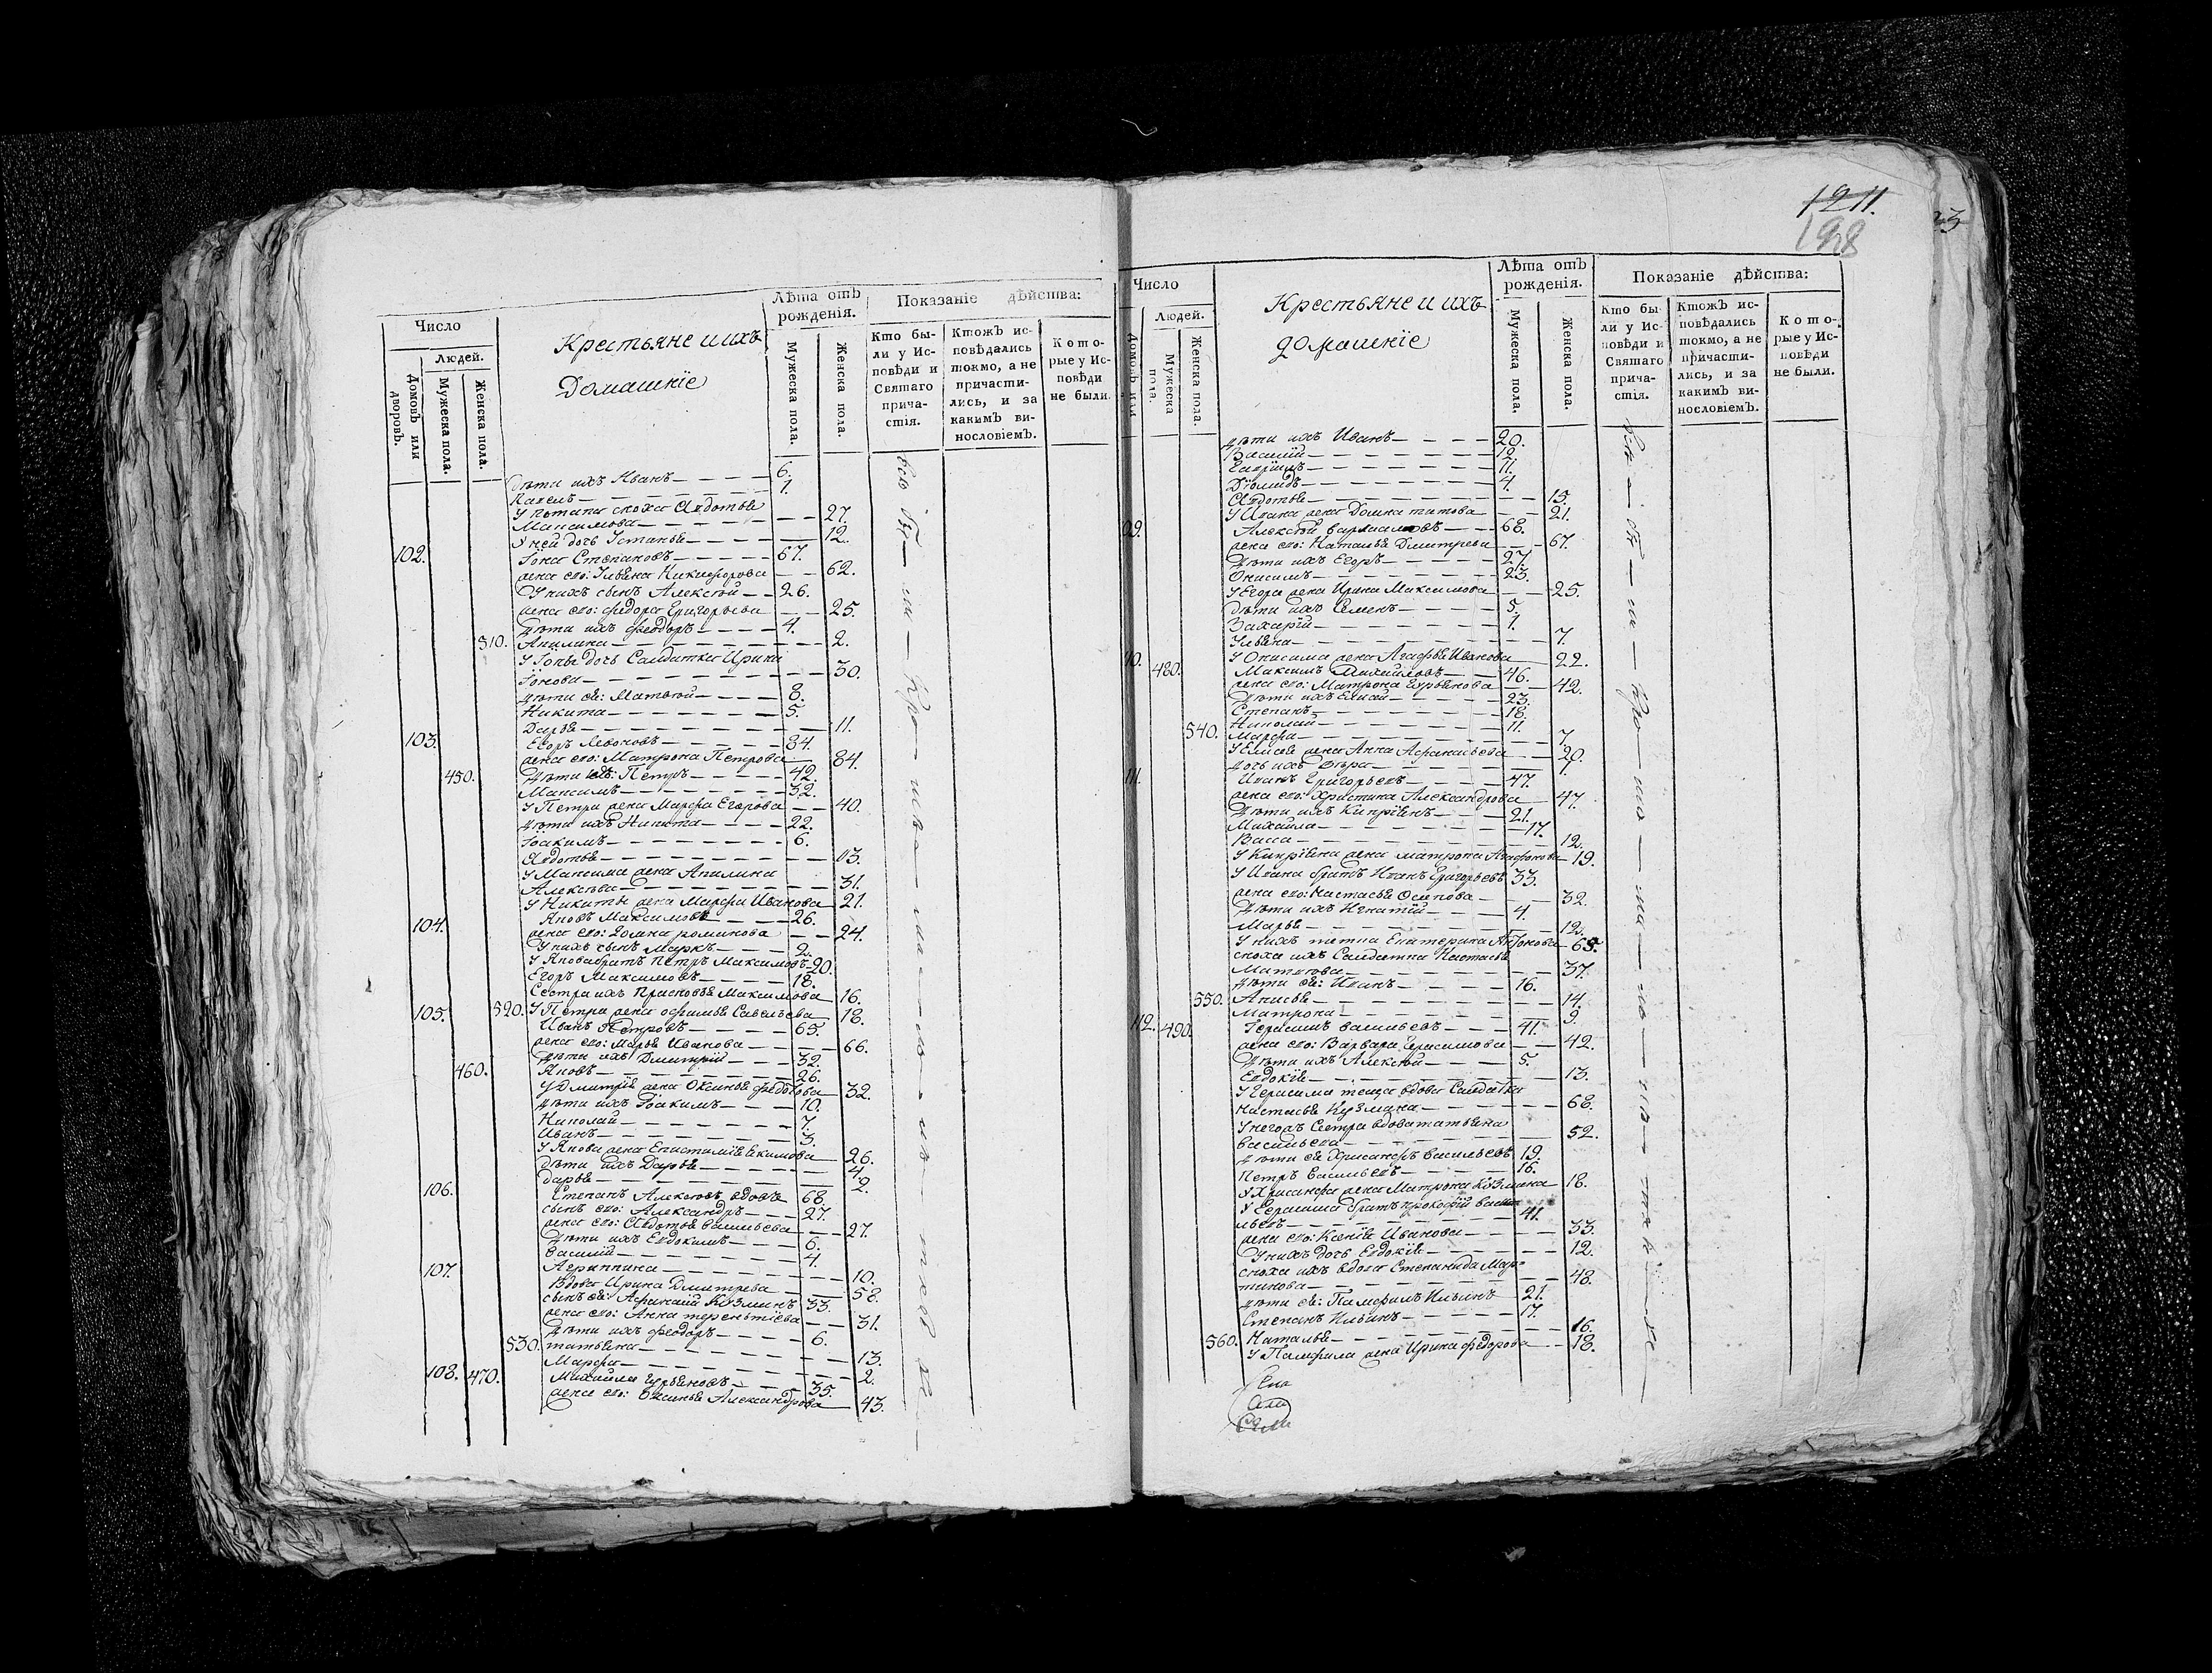 Число
Людей.
Домовъ или дворовъ.
Мужеска пола.
Женска пола.
Крестьяне и ихъ
Домашніе
Лѣта отъ рожденія.
Мужеска пола.
Женска пола.
Показаніе дѣйства:
Кто были у Исповѣди и Святаго причастія.
Ктожъ исповѣдались токмо, а не причастились, и за какимъ винословіемъ.
Которые у Исповѣди не были.
дѣти ихъ Иванъ 6.
Павелъ 1.
У Потапа сноха Авдотья
Максимова 27.
У ней дочь Устинья 12.
102. Іона Степановъ 67.
жена его: Ульяна Никифорова 62.
У нихъ сынъ Алексѣй 26.
жена его: Федора Григорьева 25.
дѣти ихъ Феодоръ 4.
510. Акилина 2.
У Іоны дочь Салдатка Ирина
Іонова 30.
дѣти ея: Матвѣй 8.
Никита 5.
Дарья 11.
103. Егоръ Левоновъ 84.
жена его: Матрона Петрова 84.
450. дѣти ихъ: Петръ 42.
Максимъ 32.
У Петра жена Марфа Егорова 40.
дѣти ихъ Никита 22.
Іоакимъ 6.
Авдотья 13.
У Максима жена Акилина
Алексѣева 31.
У Никиты жена Марфа Иванова 21.
104. Яковъ Максимовъ 26.
жена его: Домна романова 24.
У нихъ сынъ Маркъ 2.
У Якова братъ Петръ Максимовъ 20.
Егоръ Максимовъ 18.
Сестра ихъ Прасковья Максимова 16.
520. У Петра жена Офимья Савельева 18.
105. Иванъ Петровъ 65.
жена его: Марья Иванова 66.
дѣти ихъ Дмитрій 32.
460. Яковъ 26.
У Дмитрія жена Оксинья федотова 32.
дѣти ихъ Іоакимъ 10.
Николай 7.
Иванъ 3.
У Якова жена Епистимія Екимова 26.
дѣти ихъ Дарья 4.
дарья 2.
106. Степанъ Алексѣевъ вдовъ 68.
сынъ его: Александръ 27.
жена его: Авдотья васильева 27.
дѣти ихъ Евдокимъ 6.
василій 4.
Агриппина 10.
107. Вдова Ирина Дмитрева 58.
сынъ ея: Афанасій Козминъ 33.
жена его: Анна терентіева 31.
дѣти ихъ феодоръ 6.
530. татьяна 13.
Марфа 2.
108. 470. Михайла Гурьяновъ 35.
жена его: Оксинья Александрова 43.
1211.
198
23
Число
Людей.
Мужеска пола.
Женска пола.
Крестьяне и ихъ
домашніе
Лѣта отъ рожденія.
Мужеска пола.
Женска пола.
Показаніе дѣйства:
Кто были у Исповѣди и Святаго причастія.
Ктожъ исповѣдались токмо, а не причастились, и за какимъ винословіемъ.
Которые у Исповѣди не были.
дѣти ихъ Иванъ 20.
Василій 12.
Гавріилъ 11.
Діомидъ 4.
Авдотья 15.
У Ивана жена Домна титова 21.
09. Алексѣй варламовъ 68.
жена его: Наталья Дмитрева 67.
дѣти ихъ Егоръ 27.
Онисимъ 23.
У Егора жена Ирина Максимова 25.
дѣти ихъ Семенъ 5.
Захарій 1.
Ульяна 7.
У Онисима жена Агафья Иванова 22.
10. 480. Максимъ Михайловъ 46.
жена его: Матрона Гурьянова 42.
дѣти ихъ Елисей 23.
Степанъ 18.
Николай 11.
540. Марфа 7.
У Елисея жена Анна Афанасьева 20.
дочь ихъ Вѣра 1.
111. Иванъ Григорьевъ 47.
жена его: Христина Александрова 47.
дѣти ихъ Кипріянъ 21.
Михайла 17.
Васса 12.
У Кипріяна жена матрона Агафонова 19.
У Ивана братъ Иванъ Григорьевъ 33.
жена его: Настасья Осипова 32.
дѣти ихъ Игнатій 4.
Марья 12.
У нихъ тетка Екатерина 65.
сноха ихъ Салдатка Настасья
37.
дѣти ея: Иванъ 16.
550. Анисья 14.
Матрона 9.
112. 490. Герасимъ васильевъ 41.
жена его: Варвара Герасимова 42.
дѣти ихъ Алексѣй 5.
Евдокія 13.
У Герасима теща вдова Салдатка
настасья Кузмина 68.
У негожъ Сестра вдова татьяна
васильева 52.
дѣти ея Хрисанфъ васильевъ 19.
Петръ васильевъ 16.
У Хрисанфа жена Матрона Козмина 18.
У Герасима братъ прокофій васи
льевъ 41.
жена его: Ксенія Иванова 33.
У нихъ дочь Евдокія 12.
сноха ихъ вдова Степанида Мар=
тинова 48.
дѣти ея: Памфилъ Ильинъ 21.
Степанъ Ильинъ 17.
Наталья 16.
560. У Памфила жена Ирина федорова 18.